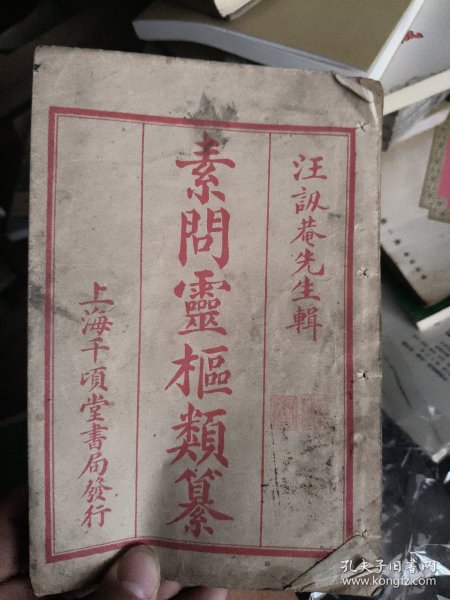 汪訒菴先生輯
素問靈樞類纂
上海千頃堂書局發行
孔夫子旧书网
www.kongfz.com